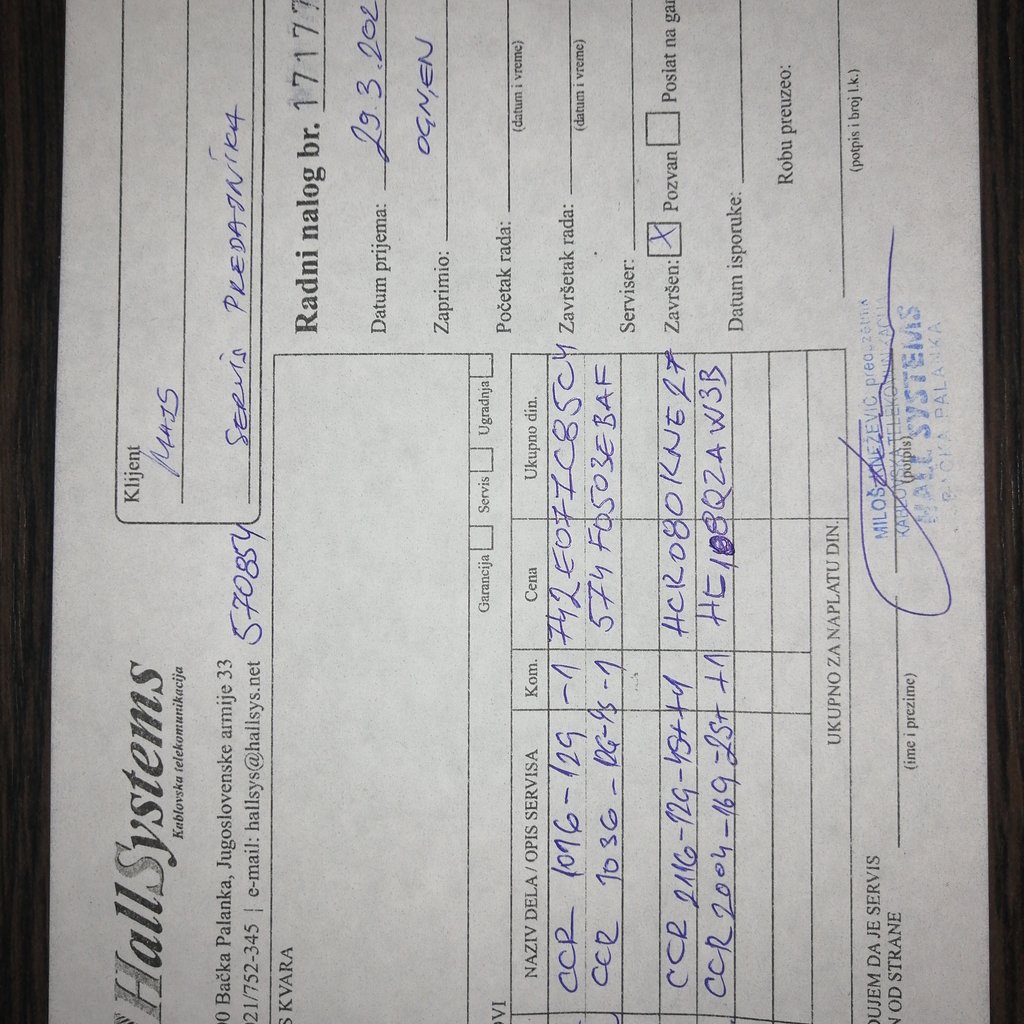 HallSystems
Kablovska telekomunikacija
Bačka Palanka, Jugoslovenske armije 33
021/752-345 | e-mail: hallsys@hallsys.net
570854
Klijent
MATS
SERVIS PREDAJNIKA
S KVARA
Garancija Servis Ugradnja
Radni nalog br. 17177
Datum prijema: 29.3.202
Zaprimio: OGNJEN
Početak rada:
(datum i vreme)
Završetak rada:
(datum i vreme)
Serviser:
Završen: X Pozvan Poslat na gar
Datum isporuke:
Robu preuzeo:
(potpis i broj l.k.)
OVI
NAZIV DELA / OPIS SERVISA Kom. Cena Ukupno din.
CCR 1016-12G -1 742E077C85C4
CCR 1036- -1 574F0503EBAF
CCR 2116-12G-4S+ +1 HCR080KNE27
CCR 2004-16G-2S+ +1 HE108QZAW3B
UKUPNO ZA NAPLATU DIN.
DUJEM DA JE SERVIS
N OD STRANE
(ime i prezime)
(potpis)
MILOŠ KNEZEVIC preduzetnik
KABLOVSKA TELEKOMUNIKACIJA
HALL SYSTEMS
BAČKA PALANKA